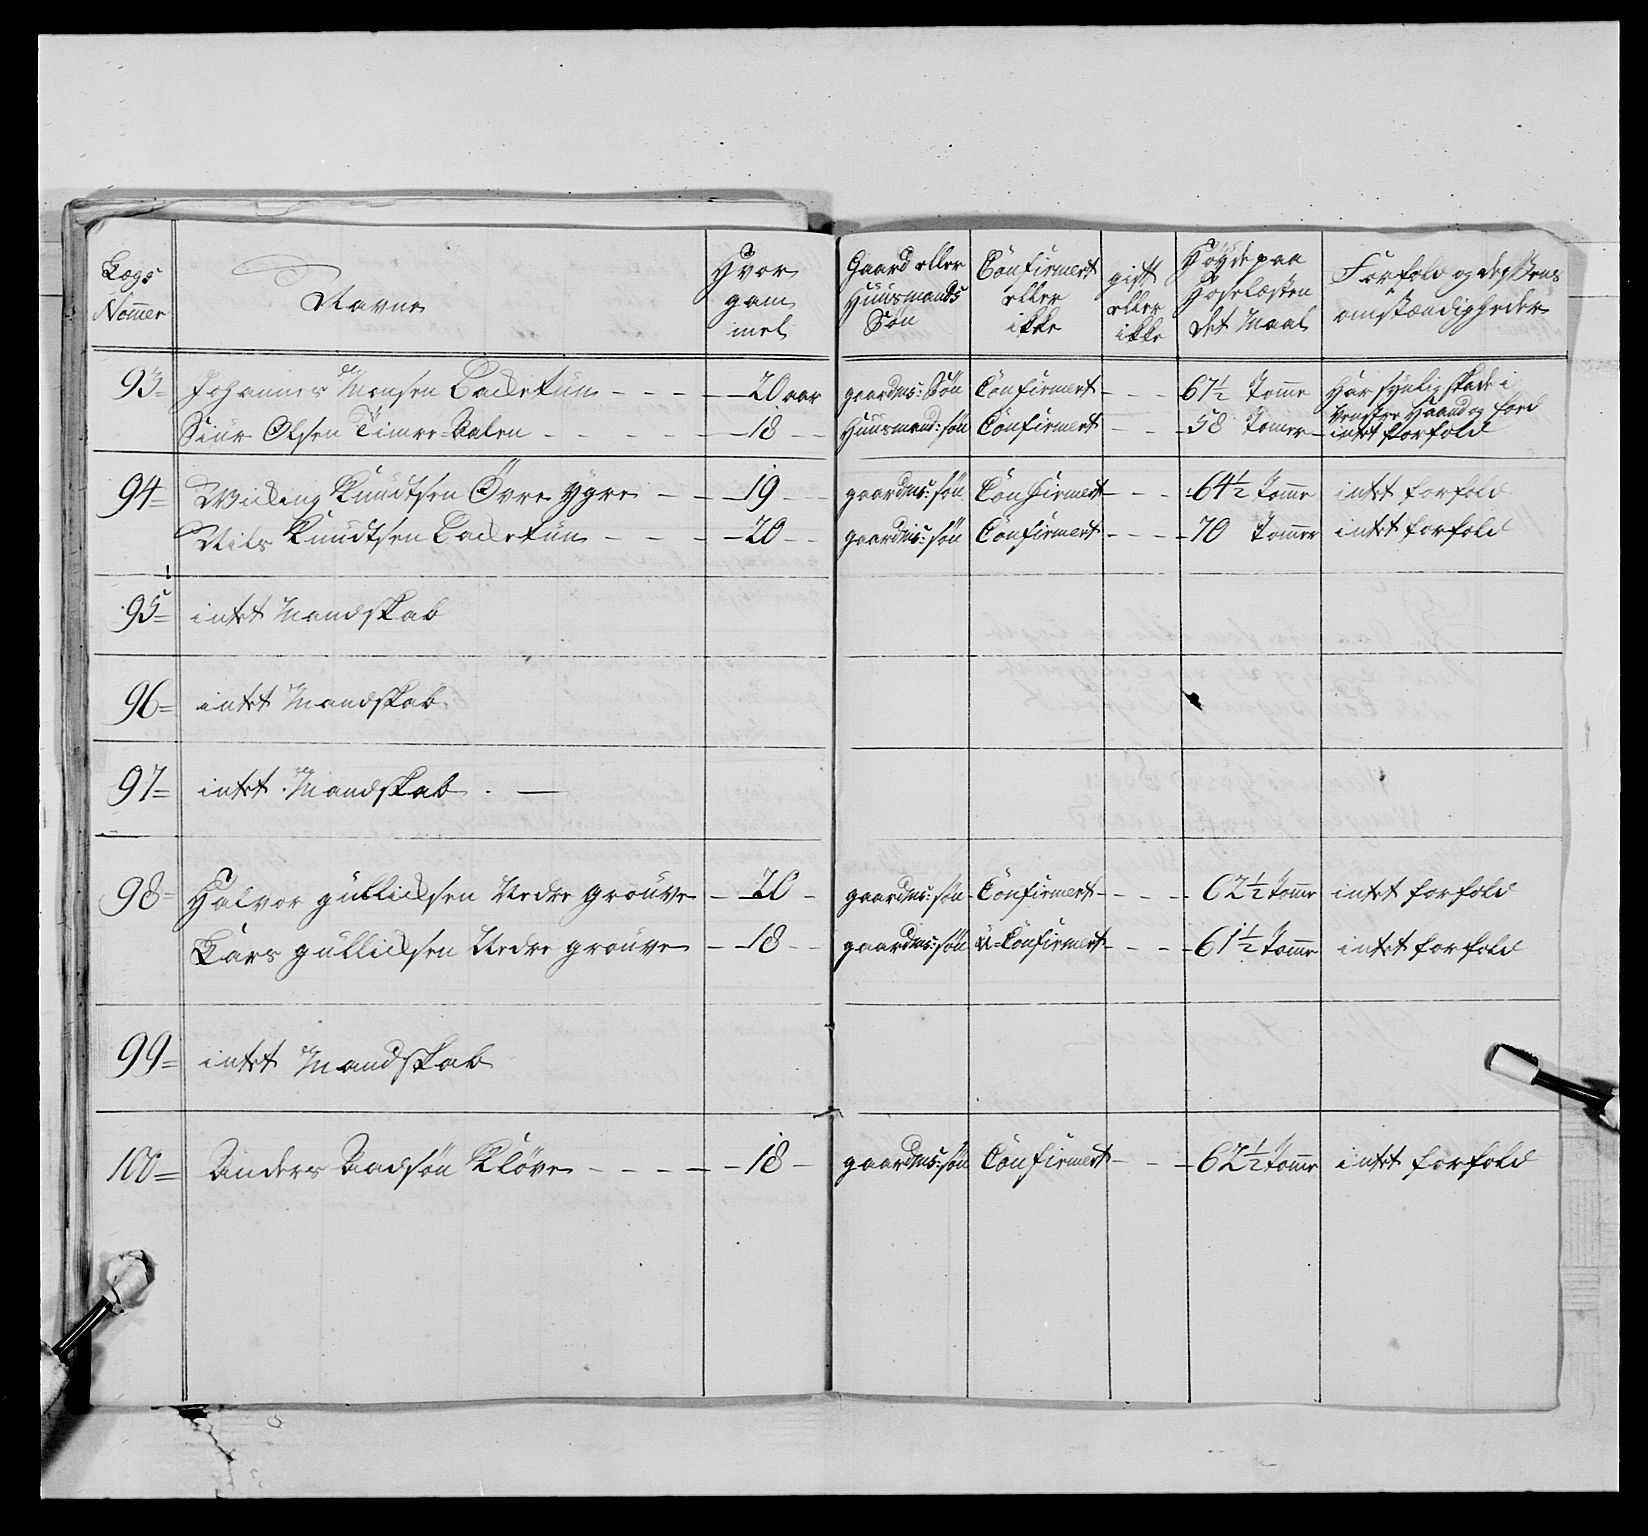 Lægs Nommer | Navne | Hvor gam mel | Gaard eller Huusmands Søn | Confirmert eller ikke | gift eller ikke | Høyde paa Hoselæsten det Maal | Forfald og dessens omstændigheder
93 | Johannes Monsen Backetun | 20 aar | gaardms: Søn | Confirmert | 67½ Tomme | Har synlig skade i venstre Haand og
Siur Olsen Timre-Dalen | 18 | Huusmand: søn | Confirmert | 58 Tomer | intet forfald
94 | Wicking Knudtsen Øvre Ygre | 19 | gaardms: søn | Confirmert | 64½ Tomme | intet forfald
Nils Knudtsen Backetun | 20 | gaardms: søn | Confirmert | 70 Tomer | intet forfald
95 | intet Mandskab
96 | intet Mandskab
97 | intet Mandskab
98 | Halvor gullicksen Nedre grouve | 20 | gaardms: søn | Confirmert | 62½ Tomme | intet forfald
Lars gullicksen Nedre grouve | 18 | gaardms: søn | u-Confirmert | 61½ Tomme | intet forfald
99 | intet Mandskab
100 | Anders Aadsøn Kløve | 18 | gaardms: søn | Confirmert | 62½ Tomme | intet forfald